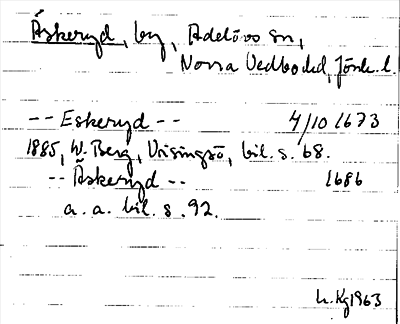 Äskeryd, by, Adelövs sn,
Norra Vedbo hd, Jönk. l.
-- Eskeryd -- 4/10 1673
1885, W. Berg, Visingsö, bil. s. 68.
-- Äskeryd -- 1686
a. a. bil. s. 92.
1963